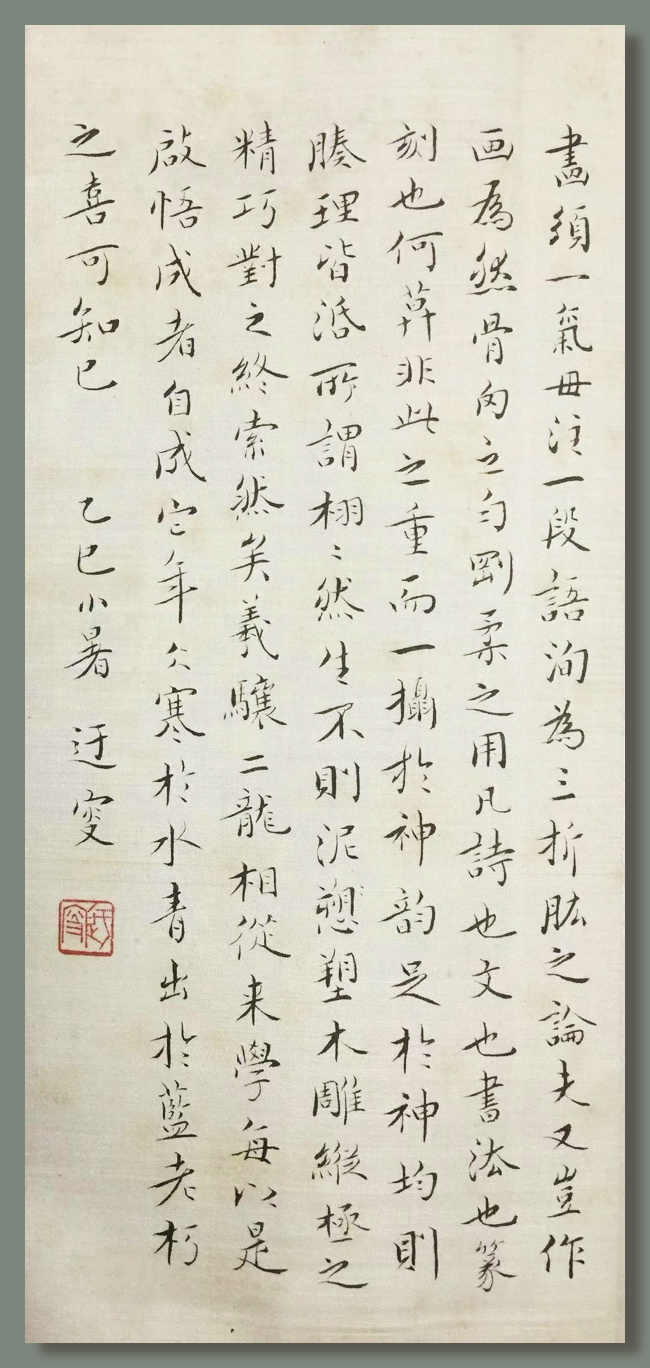 畫須一氣毋注一段語洵為三折肱之論夫又豈作
画為然骨肉之勻剛柔之用凡詩也文也書法也篆
刻也何莫非此之重而一攝於神韵足於神均則
腠理皆活所謂栩〻然生不則泥塑木雕縱極之
精巧對之終索然矣羲驤二龍相從来學每以是
啟悟成者自成它年仌寒於水青出於藍老朽
之喜可知已
乙巳小暑 迂叟